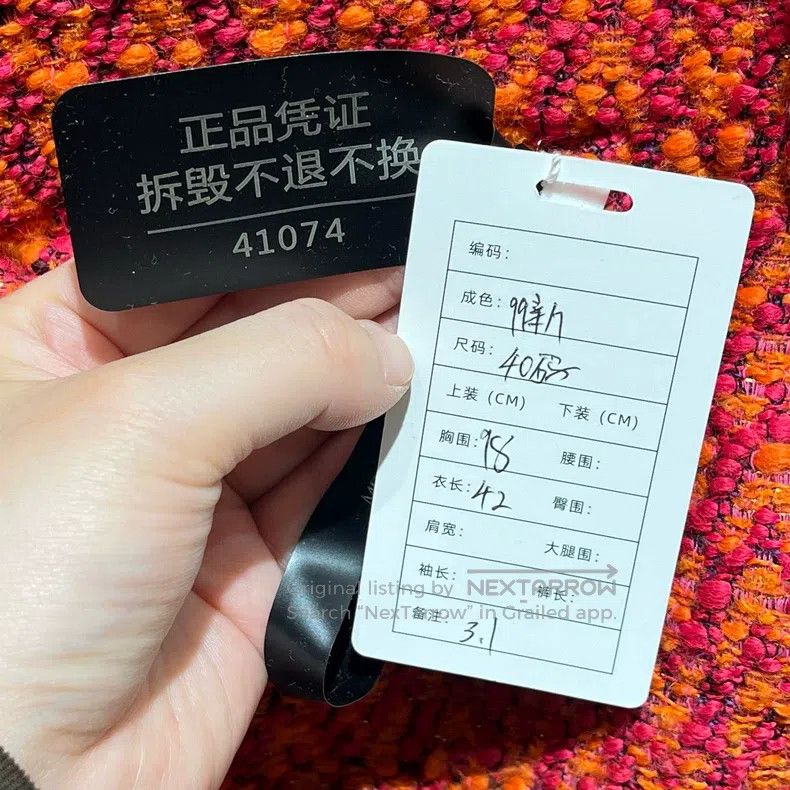 正品凭证
拆毁不退不换
41074
编码:
成色: 99新
尺码: 40码
上装 (CM) 下装 (CM)
胸围: 98 腰围:
衣长: 42 臀围:
肩宽: 大腿围:
袖长: 裤长:
备注: 3.1
Original listing by NEXTARROW
Search "NexTarrow" in Grailed app.